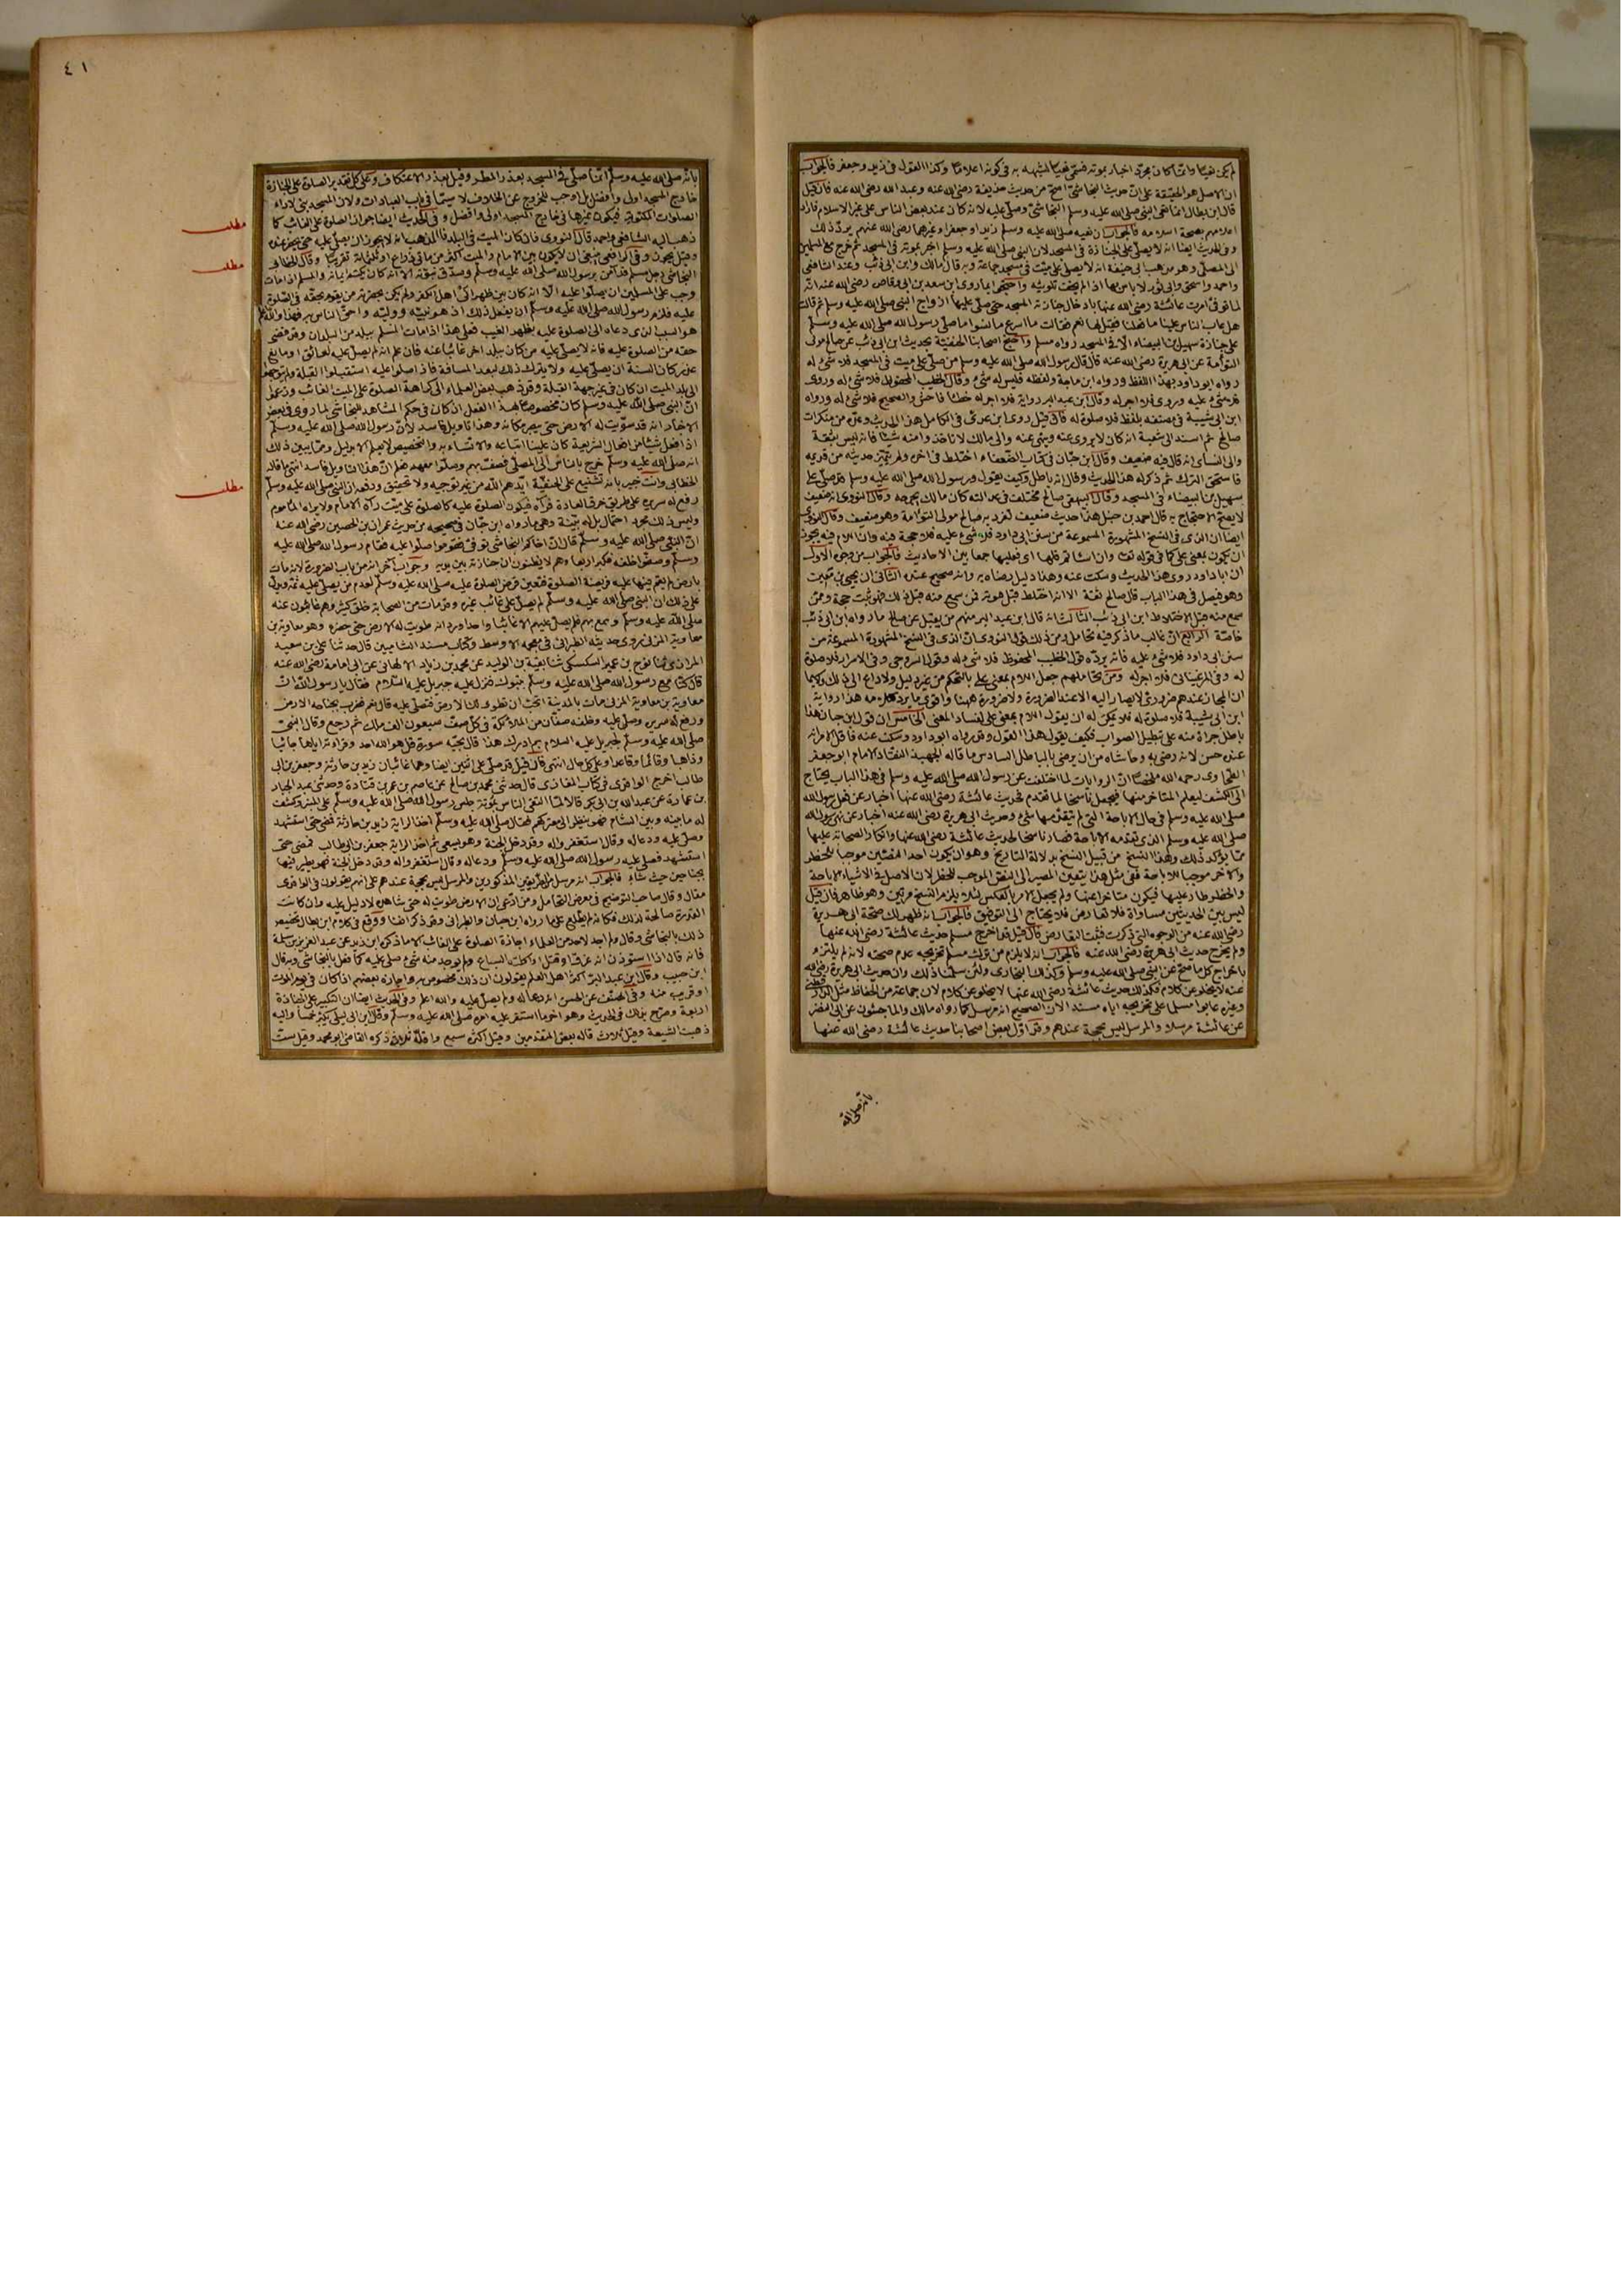 لم يكن نعيا وانما كان مجرد اخبار بموته فسمي نعيا لشبهه به في كونه اعلاما وكذا القول في زيد وجعفر فالجواب
ان الاصل هو الحقيقة على ان حديث النجاشي اصح من حديث حذيفة رضي الله عنه وعبد الله رضي الله عنه فان قيل
قال ابن بطال انما نعى النبي صلى الله عليه وسلم النجاشي وصلى عليه لانه كان عند بعض الناس على غير الاسلام فاراد
اعلامهم بصحة اسلامه فالجواب ان نعيه صلى الله عليه وسلم زيدا وجعفرا وغيرهما رضي الله عنهم يرد ذلك
وفي الحديث ايضا انه لا يصلى على الجنازة في المسجد لان النبي صلى الله عليه وسلم اخبر بموته في المسجد ثم خرج مع المسلمين
الى المصلى وهو مذهب ابي حنيفة انه لا يصلى على ميت في مسجد جماعة وبه قال مالك وابن ابي ذئب وعند الشافعي
واحمد واسحق وابي ثور لا باس بها اذا لم يخف تلويثه واحتجوا بما روي ان سعد بن ابي وقاص رضي الله عنه انه
لما توفي امرت عائشة رضي الله عنها بادخال جنازته المسجد حتى صلى عليها ازواج النبي صلى الله عليه وسلم ثم قالت
هل عاب الناس علينا ما فعلنا فقيل لها نعم فقالت ما اسرع ما نسوا ما صلى رسول الله صلى الله عليه وسلم
على جنازة سهيل بن البيضاء الا في المسجد رواه مسلم واحتج اصحابنا الحنفية بحديث ابن ابي ذئب عن صالح مولى
التوأمة عن ابي هريرة رضي الله عنه قال قال رسول الله صلى الله عليه وسلم من صلى على ميت في المسجد فلا شيء له
رواه ابو داود بهذا اللفظ ورواه ابن ماجة ولفظه فليس له شيء وقال الخطيب المحفوظ فلا شيء له وروي
فلا شيء عليه وروي فلا اجر له وقال ابن عبد البر رواية فلا اجر له خطأ فاحش والصحيح فلا شيء له ورواه
ابن ابي شيبة في مصنفه بلفظ فلا صلوة له فان قيل روى ابن عدي في الكامل هذا الحديث وعده من منكرات
صالح ثم اسند الى شعبة انه كان لا يروي عنه وينهى عنه والى مالك لا تاخذوا منه شيئا فانه ليس بثقة
والى النسائي انه قال فيه ضعيف وقال ابن حبان في كتاب الضعفاء اختلط في اخره ولم يتميز حديثه من قديمه
فاستحق الترك ثم ذكر له هذا الحديث وقال انه باطل وكيف يقول رسول الله صلى الله عليه وسلم وقد صلى على
سهيل بن البيضاء في المسجد وقال البيهقي صالح مختلف في عدالته كان مالك يجرحه وقال النووي انه ضعيف
لا يصح الاحتجاج به قال احمد بن حنبل هذا حديث ضعيف تفرد به صالح مولى التوأمة وهو ضعيف وقال النووي
ايضا ان الذي في النسخ المشهورة المسموعة من سنن ابي داود فلا شيء عليه فلا حجة فيه وان اللام فيه يجوز
ان يكون بمعنى على كما في قوله تعالى وان اسأتم فلها اي فعليها جمعا بين الاحاديث فالجواب من وجوه الاول
ان ابا داود روى هذا الحديث وسكت عنه وهذا دليل رضاه به وانه صحيح عنده الثاني ان يحيى بن معين
وهو فيصل في هذا الباب قال صالح ثقة الا انه اختلط قبل موته فمن سمع منه قبل ذلك فهو ثبت حجة وممن
سمع منه قبل الاختلاط ابن ابي ذئب الثالث انه قال ابن عبد البر منهم من يقبل عن صالح ما رواه ابن ابي ذئب
خاصة الرابع ان غالب ما ذكر فيه تحامل ومن ذلك قول النووي ان الذي في النسخ المشهورة المسموعة من
سنن ابي داود فلا شيء عليه فانه يرده قول الخطيب المحفوظ فلا شيء له وقول السروجي وفي الاسرار فلا صلوة
له وفي المرغيناني فلا اجر له ومن تحاملهم جعل اللام بمعنى على بالتحكم من غير دليل ولا داع الى ذلك ولا سيما
ان المجاز عندهم ضروري لا يصار اليه الا عند الضرورة ولا ضرورة ههنا واقوى ما يرد كلامه هذا رواية
ابن ابي شيبة فلا صلوة له فلا يمكن له ان يقول اللام بمعنى على لفساد المعنى الخامس ان قول ابن حبان هذا
باطل جرأة منه على تبطيل الصواب فكيف يقول هذا القول وقد رواه ابو داود وسكت عنه فاقل الامر انه
عنده حسن لانه رضي به وحاشاه من ان يرضى بالباطل السادس ما قاله الجهبذ النقاد الامام ابو جعفر
الطحاوي رحمه الله ملخصا ان الروايات لما اختلفت عن رسول الله صلى الله عليه وسلم في هذا الباب يحتاج
الى الكشف ليعلم المتاخر منها فيجعل ناسخا لما تقدم فحديث عائشة رضي الله عنها اخبار عن فعل رسول الله
صلى الله عليه وسلم في حال الاباحة التي لم يتقدمها شيء وحديث ابي هريرة رضي الله عنه اخبار عن نهي رسول الله
صلى الله عليه وسلم الذي تقدمه الاباحة فصار ناسخا لحديث عائشة رضي الله عنها وانكار الصحابة عليها
مما يؤكد ذلك وهذا النسخ من قبيل النسخ بدلالة التاريخ وهو ان يكون احد النصين موجبا للحظر
والاخر موجبا للاباحة ففي مثل هذا يتعين المصير الى النص الموجب للحظر لان الاصل في الاشياء الاباحة
والحظر طار عليها فيكون متاخرا عنها ولم يجعل الامر بالعكس لئلا يلزم النسخ مرتين وهو ظاهر فان قيل
ليس بين الحديثين مساواة فلا تعارض فلا يحتاج الى التوفيق فالجواب انه ظهر لك صحة ابي هريرة
رضي الله عنه من الوجوه التي ذكرت فثبت التعارض فان قيل قد اخرج مسلم حديث عائشة رضي الله عنها
ولم يخرج حديث ابي هريرة رضي الله عنه فالجواب انه لا يلزم من ترك مسلم تخريجه عدم صحته لانه لم يلتزم
باخراج كل ما صح عن النبي صلى الله عليه وسلم وكذلك البخاري ولئن سلمنا ذلك وان حديث ابي هريرة رضي الله
عنه لا يخلو عن كلام فكذلك حديث عائشة رضي الله عنها لا يخلو عن كلام لان جماعة من الحفاظ مثل الدار قطني
وغيره عابوا مسلما على تخريجه اياه مسندا لان الصحيح انه مرسل كما رواه مالك والماجشون عن ابي النضر
عن عائشة مرسلا والمرسل ليس بحجة عندهم وقد اول بعض اصحابنا حديث عائشة رضي الله عنها
بانه صلى الله
٤١
بانه صلى الله عليه وسلم انما صلى في المسجد بعذر المطر وقيل بعذر الاعتكاف وعلى كل تقدير الصلوة على الجنازة
خارج المسجد اولى وافضل بل اوجب للخروج عن الخلاف لا سيما في باب العبادات ولان المسجد بني لاداء
الصلوات المكتوبة فيكون غيرها في خارج المسجد اولى وافضل وفي الحديث ايضا جواز الصلوة على الغائب كما
مطلب
ذهب اليه الشافعي واحمد قال النووي فان كان الميت في البلد فالمذهب انه لا يجوز ان يصلى عليه حتى يحضر عنده
وقيل يجوز وفي الرافعي ينبغي ان لا يكون بين الامام والميت اكثر من مائتي ذراع او ثلثمائة تقريبا وقال الخطابي
مطلب
النجاشي رجل مسلم قد آمن برسول الله صلى الله عليه وسلم وصدق نبوته الا انه كان يكتم ايمانه والمسلم اذا مات
وجب على المسلمين ان يصلوا عليه الا انه كان بين ظهراني اهل الكفر ولم يكن بحضرته من يقوم بحقه في الصلوة
عليه فلزم رسول الله صلى الله عليه وسلم ان يفعل ذلك اذ هو نبيه ووليه واحق الناس به فهذا والله اعلم
هو السبب الذي دعاه الى الصلوة عليه بظهر الغيب فعلى هذا اذا مات المسلم ببلد من البلدان وقد قضي
حقه من الصلوة عليه فانه لا يصلي عليه من كان ببلد اخر غائبا عنه فان علم انه لم يصل عليه لعائق او مانع
عذر كان السنة ان يصلى عليه ولا يترك ذلك لبعد المسافة فاذا صلوا عليه استقبلوا القبلة ولم يتوجهوا
الى بلد الميت ان كان في غير جهة القبلة وقد ذهب بعض العلماء الى كراهة الصلوة على الميت الغائب وزعموا
ان النبي صلى الله عليه وسلم كان مخصوصا بهذا الفعل اذ كان في حكم المشاهد للنجاشي لما روي في بعض
الاخبار انه قد سويت له الارض حتى يبصر مكانه وهذا تاويل فاسد لان رسول الله صلى الله عليه وسلم
اذا فعل شيئا من افعال الشريعة كان علينا اتباعه والاتساء به والتخصيص لا يعلم الا بدليل ومما يبين ذلك
انه صلى الله عليه وسلم خرج بالناس الى المصلى فصف بهم وصلوا معه فعلم ان هذا التاويل فاسد انتهى ما قاله
الخطابي وانت خبير بانه تشنيع على الحنفية ايدهم الله من غير توجيه ولا تحقيق ودفعه ان النبي صلى الله عليه وسلم
مطلب
رفع له سريره على طريق خرق العادة فرآه فيكون الصلوة عليه كالصلوة على ميت رآه الامام ولا يراه الماموم
وليس ذلك مجرد احتمال بل له بينة وهي ما رواه ابن حبان في صحيحه من حديث عمران بن الحصين رضي الله عنه
ان النبي صلى الله عليه وسلم قال ان اخاكم النجاشي توفي فقوموا صلوا عليه فقام رسول الله صلى الله عليه
وسلم وصفوا خلفه فكبر اربعا وهم لا يظنون ان جنازته بين يديه وجواب آخر انه من باب الضرورة لانه مات
بارض لم يقم فيها عليه فريضة الصلوة فتعين فرض الصلوة عليه صلى الله عليه وسلم لعدم من يصلي عليه ثمه ويدل
على ذلك ان النبي صلى الله عليه وسلم لم يصل على غائب غيره وقد مات من الصحابة خلق كثير وهم غائبون عنه
صلى الله عليه وسلم وسمع بهم فلم يصل عليهم الا غائبا واحدا ورد انه طويت له الارض حتى حضره وهو معاوية بن
معاوية المزني روى حديثه الطبراني في معجمه الاوسط وكتاب مسند الشاميين قال حدثنا علي بن سعيد
الرازي ثنا نوح بن عمير السكسكي ثنا بقية بن الوليد عن محمد بن زياد الالهاني عن ابي امامة رضي الله عنه
قال كنا مع رسول الله صلى الله عليه وسلم بتبوك فنزل عليه جبريل عليه السلام فقال يا رسول الله ان
معاوية بن معاوية المزني مات بالمدينة اتحب ان تطوى لك الارض فتصلي عليه قال نعم فضرب بجناحه الارض
ورفع له سريره وصلى عليه وخلفه صفان من الملائكة في كل صف سبعون الف ملك ثم رجع وقال النبي
صلى الله عليه وسلم لجبريل عليه السلام بم ادرك هذا قال بحبه سورة قل هو الله احد وقراءته اياها جائيا
وذاهبا وقائما وقاعدا وعلى كل حال انتهى فان قيل قد صلى على اثنين ايضا وهما غائبان زيد بن حارثة وجعفر بن ابي
طالب اخرج الواقدي في كتاب المغازي قال حدثني محمد بن صالح عن عاصم بن عمر بن قتادة وحدثني عبد الجبار
بن عمارة عن عبد الله بن ابي بكر قالا لما التقى الناس بموتة جلس رسول الله صلى الله عليه وسلم على المنبر وكشف
له ما بينه وبين الشام فهو ينظر الى معتركهم فقال صلى الله عليه وسلم اخذ الراية زيد بن حارثة فمضى حتى استشهد
وصلى عليه ودعا له وقال استغفروا له وقد دخل الجنة وهو يسعى ثم اخذ الراية جعفر بن ابي طالب فمضى حتى
استشهد فصلى عليه رسول الله صلى الله عليه وسلم ودعا له وقال استغفروا له وقد دخل الجنة فهو يطير فيها
بجناحين حيث شاء فالجواب انه مرسل من الطريقين المذكورين والمرسل ليس بحجة عندهم على انهم يقولون في الواقدي
مقال وقال صاحب التوضيح في معرض التحامل ومن ادعى ان الارض طويت له حتى شاهده لا دليل عليه وان كانت
القدرة صالحة لذلك فكانه لم يطلع على ما رواه ابن حبان والطبراني وقد ذكر آنفا ووقع في كلام ابن بطال تخصيص
ذلك بالنجاشي وقال ولم اجد لاحد من العلماء اجازة الصلوة على الغائب الا ما ذكره ابن زيد عن عبد العزيز بن سلمة
فانه قال اذا استوذن انه غرق او قتل او اكلته السباع ولم يوجد منه شيء صلى عليه كما فعل بالنجاشي وبه قال
ابن حبيب وقال ابن عبد البر اكثر اهل العلم يقولون ان ذلك مخصوص به واجازه بعضهم اذا كان في يوم الموت
او قريب منه وفي المصنف عن الحسن انه دعا له ولم يصل عليه والله اعلم وفي الحديث ايضا ان التكبير على الجنازة
اربعة وصرح بذلك في الحديث وهو آخر ما استقر عليه امره صلى الله عليه وسلم وقال ابن ابي ليلى يكبر خمسا واليه
ذهبت الشيعة وقيل ثلاث قاله بعض المتقدمين وقيل اكثره سبع واقله ثلاث ذكره القاضي ابو محمد وقيل ست